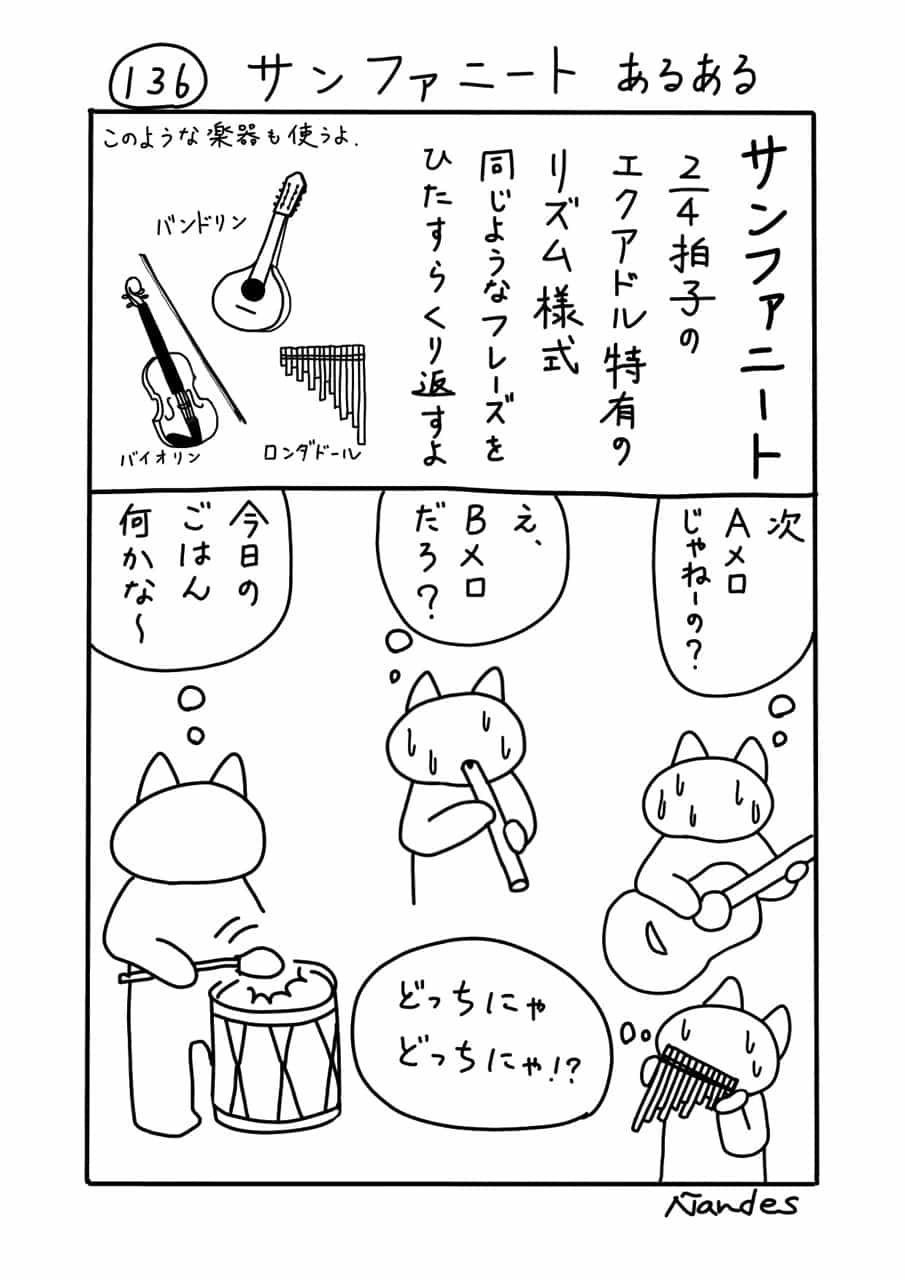 136 サンファニート あるある
サンファニート
2/4拍子の
エクアドル特有の
リズム様式
同じようなフレーズを
ひたすらくり返すよ
このような楽器も使うよ.
バンドリン
バイオリン
ロンダドール
次
Aメロ
じゃねーの?
え、
Bメロ
だろ?
今日の
ごはん
何かな〜
どっちにゃ
どっちにゃ!?
Ñandes